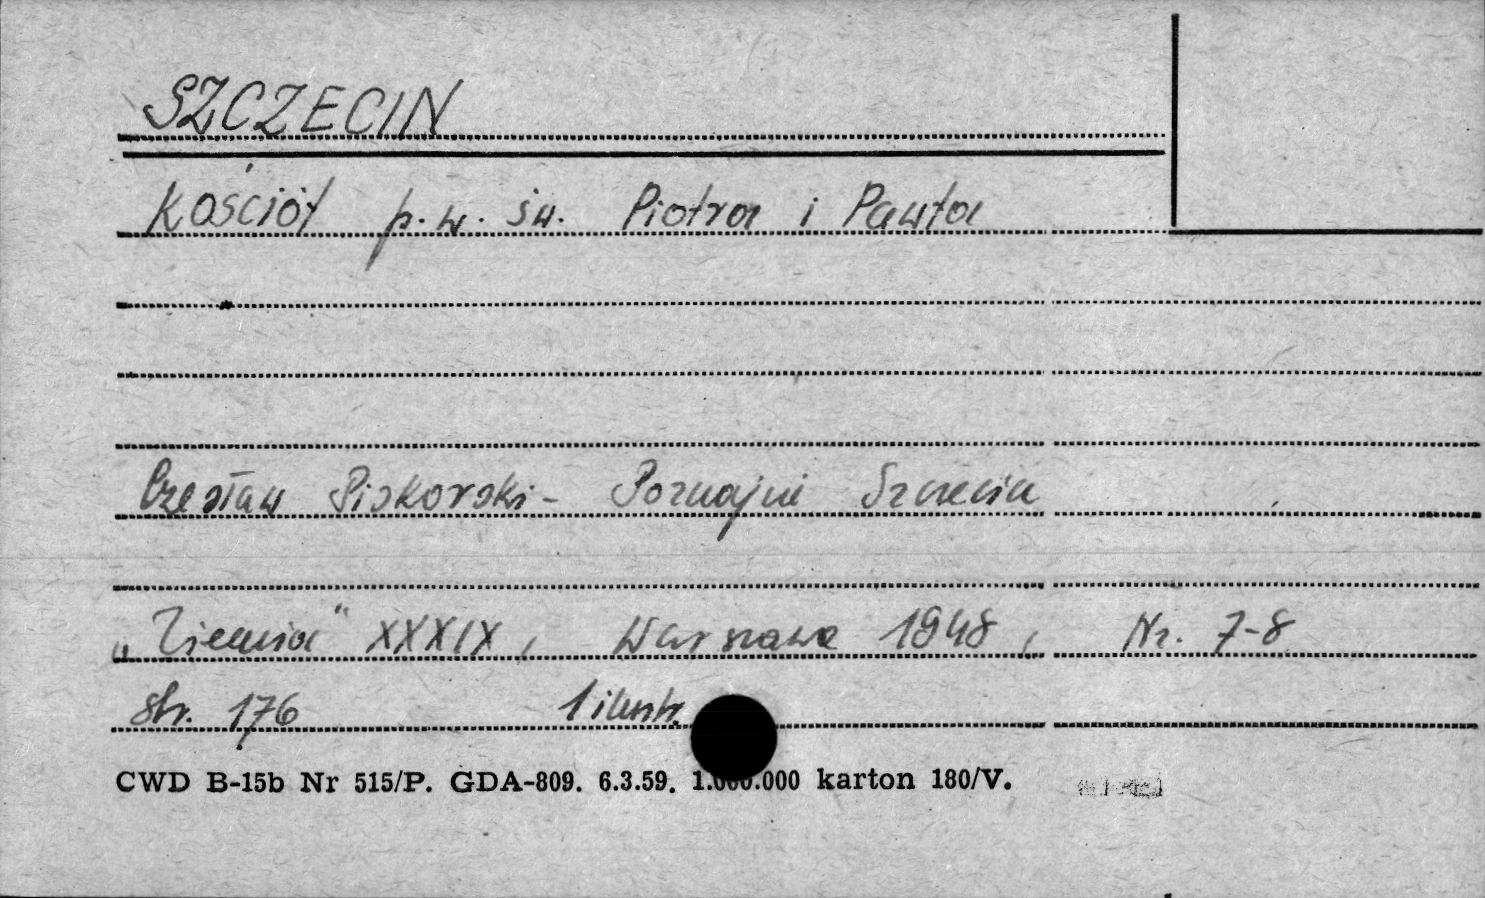 SZCZECIN
Kościół p.w. św. Piotra i Pawła
Czesław Piskorski - Poznajmy Szczecin
„Ziemia" XXXIX, Warszawa 1948, Nr. 7-8
str. 176 1 ilustr.
CWD B-15b Nr 515/P. GDA-809. 6.3.59. 1.000.000 karton 180/V.